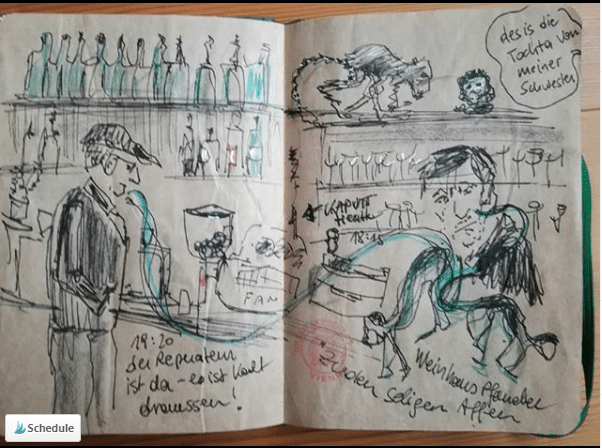 des is die
Tochta von
meiner
Schwester
KAPUTT
18:15
FAN
19:20
der Reparateur
ist da – es ist kalt
draussen!
Weinhaus Pfandler
Zu den seligen Affen
Schedule